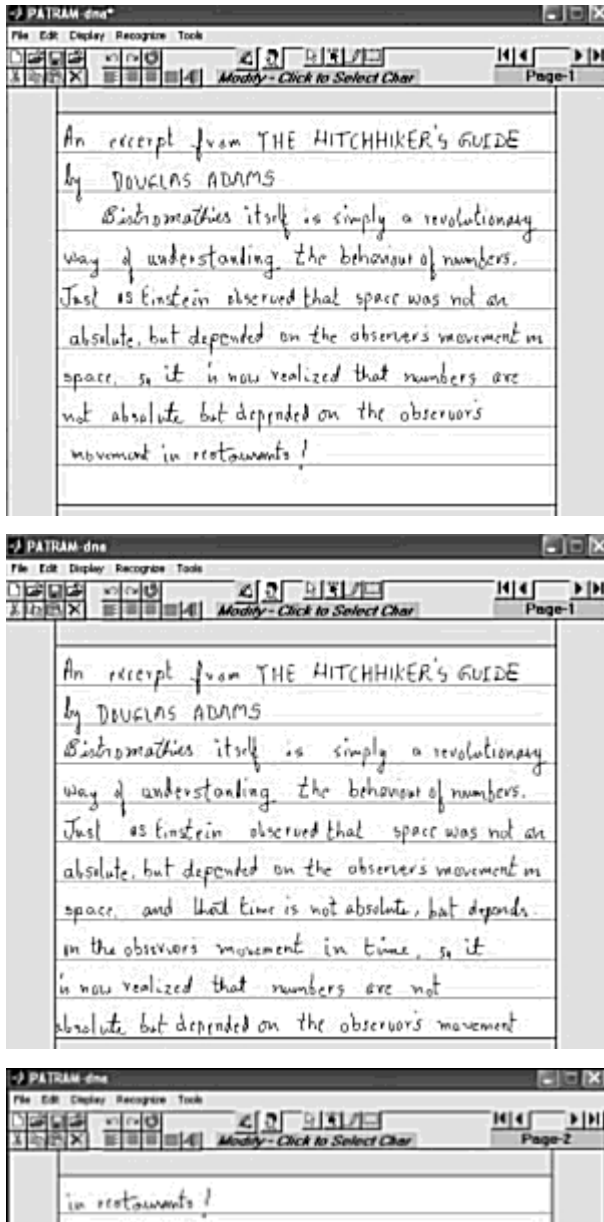 PATRAM-dna*
File Edit Display Recognize Tools
Modify - Click to Select Char
Page-1
An excerpt from THE HITCHHIKER'S GUIDE
by DOUGLAS ADAMS
Bistromathics itself is simply a revolutionary
way of understanding the behaviour of numbers.
Just as Einstein observed that space was not an
absolute, but depended on the observers movement in
space, so it is now realized that numbers are
not absolute but depended on the observor's
movement in restaurants!
PATRAM-dna
File Edit Display Recognize Tools
Modify - Click to Select Char
Page-1
An excerpt from THE HITCHHIKER'S GUIDE
by DOUGLAS ADAMS
Bistromathics itself is simply a revolutionary
way of understanding the behaviour of numbers.
Just as Einstein observed that space was not an
absolute, but depended on the observers movement in
space, and that time is not absolute, but depends
on the observors movement in time, so it
is now realized that numbers are not
absolute but depended on the observor's movement
PATRAM-dna
File Edit Display Recognize Tools
Modify - Click to Select Char
Page-2
in restaurants!